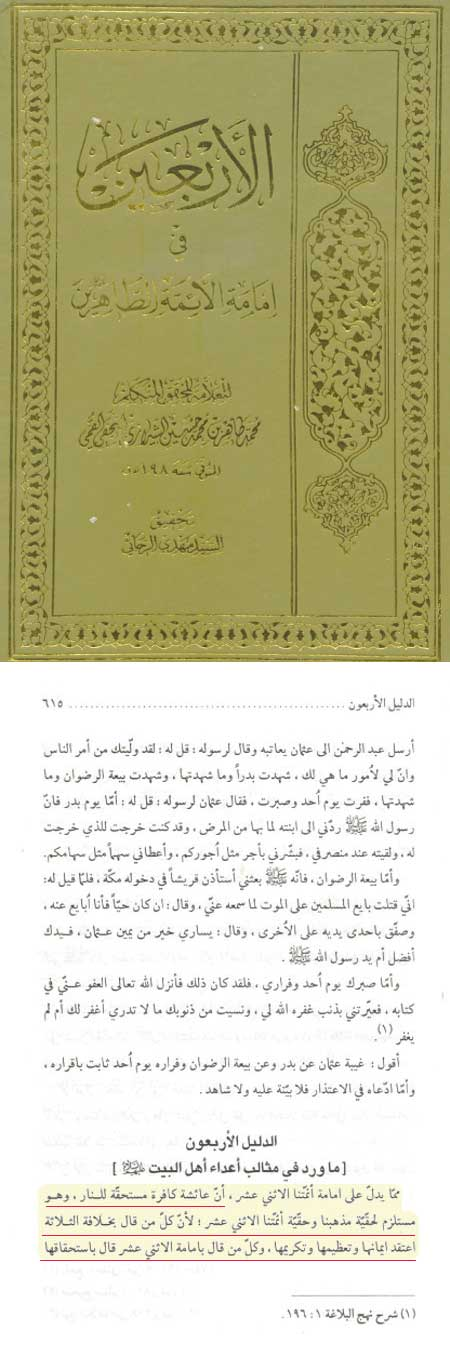 الأربعين
في
إمامة الأئمة الطاهرين
للعلامة المحقق المتكلم
محمد طاهر بن محمد حسين الشيرازي النجفي القمي
المتوفى سنة ١٠٩٨ ه‍ ق
تحقيق
السيد مهدي الرجائي
الدليل الأربعون ................................................ ٦١٥
أرسل عبد الرحمٰن الى عثمان يعاتبه وقال لرسوله : قل له : لقد ولّيتك من أمر الناس
وانّ لي لأمور ما هي لك ، شهدت بدراً وما شهدتها ، وشهدت بيعة الرضوان وما
شهدتها ، ففرت يوم اُحد وصبرت ، فقال عثمان لرسوله : قل له : أمّا يوم بدر فانّ
رسول الله ﷺ ردّني الى ابنته لما بها من المرض ، وقد كنت خرجت للذي خرجت
له ، ولقيته عند منصرفه ، فبشّرني بأجر مثل أجوركم ، وأعطاني سهماً مثل سهامكم.
وأمّا بيعة الرضوان ، فانّه ﷺ بعثني أستأذن قريشاً في دخوله مكّة ، فلمّا قيل له :
انّي قتلت بايع المسلمين على الموت لما سمعه عنّي ، وقال : ان كان حيّاً فأنا اُبايع عنه ،
وصفّق باحدى يديه على الاُخرى ، وقال : يساري خير من يمين عثمان ، فيدك
أفضل أم يد رسول الله ﷺ .
وأمّا صبرك يوم اُحد وفراري ، فلقد كان ذلك فأنزل الله تعالى العفو عنّي في
كتابه ، فعيّرتني بذنب غفره الله لي ، ونسيت من ذنوبك ما لا تدري أغفر لك أم لم
يغفر (١).
أقول : غيبة عثمان عن بدر وعن بيعة الرضوان وفراره يوم اُحد ثابت باقراره ،
وأمّا ادّعاه في الاعتذار فلا بيّنة عليه ولا شاهد .
الدليل الأربعون
[ ما ورد في مثالب أعداء أهل البيت ﵈ ]
ممّا يدلّ على امامة أئمّتنا الاثني عشر ، أنّ عائشة كافرة مستحقّة للنار ، وهو
مستلزم لحقّيّة مذهبنا وحقّيّة أئمّتنا الاثني عشر ؛ لأنّ كلّ من قال بخلافة الثلاثة
اعتقد ايمانها وتعظيمها وتكريمها ، وكلّ من قال بامامة الاثني عشر قال باستحقاقها
(١) شرح نهج البلاغة ١ : ١٩٦ .